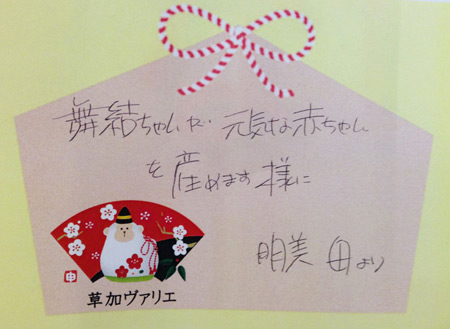 舞結ちゃんが元気な赤ちゃん
を産めます様に
明美 母より
申
草加ヴァリエ